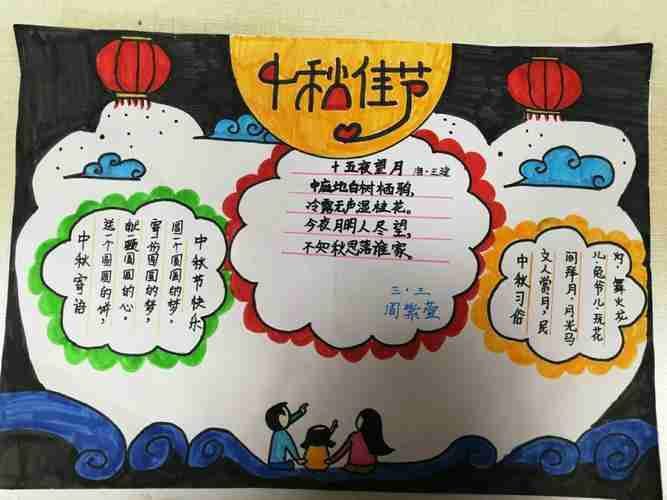 中秋佳节
十五夜望月 唐·王建
中庭地白树栖鸦,
冷露无声湿桂花。
今夜月明人尽望,
不知秋思落谁家。
三.二
周紫萱
中秋寄语
送一个圆圆的饼,
献一颗圆圆的心。
寄一份圆圆的梦,
圆一个圆圆的梦。
中秋节快乐
中秋习俗
文人赏月,民
间拜月.月光马
儿.兔爷儿玩花
灯.舞火龙